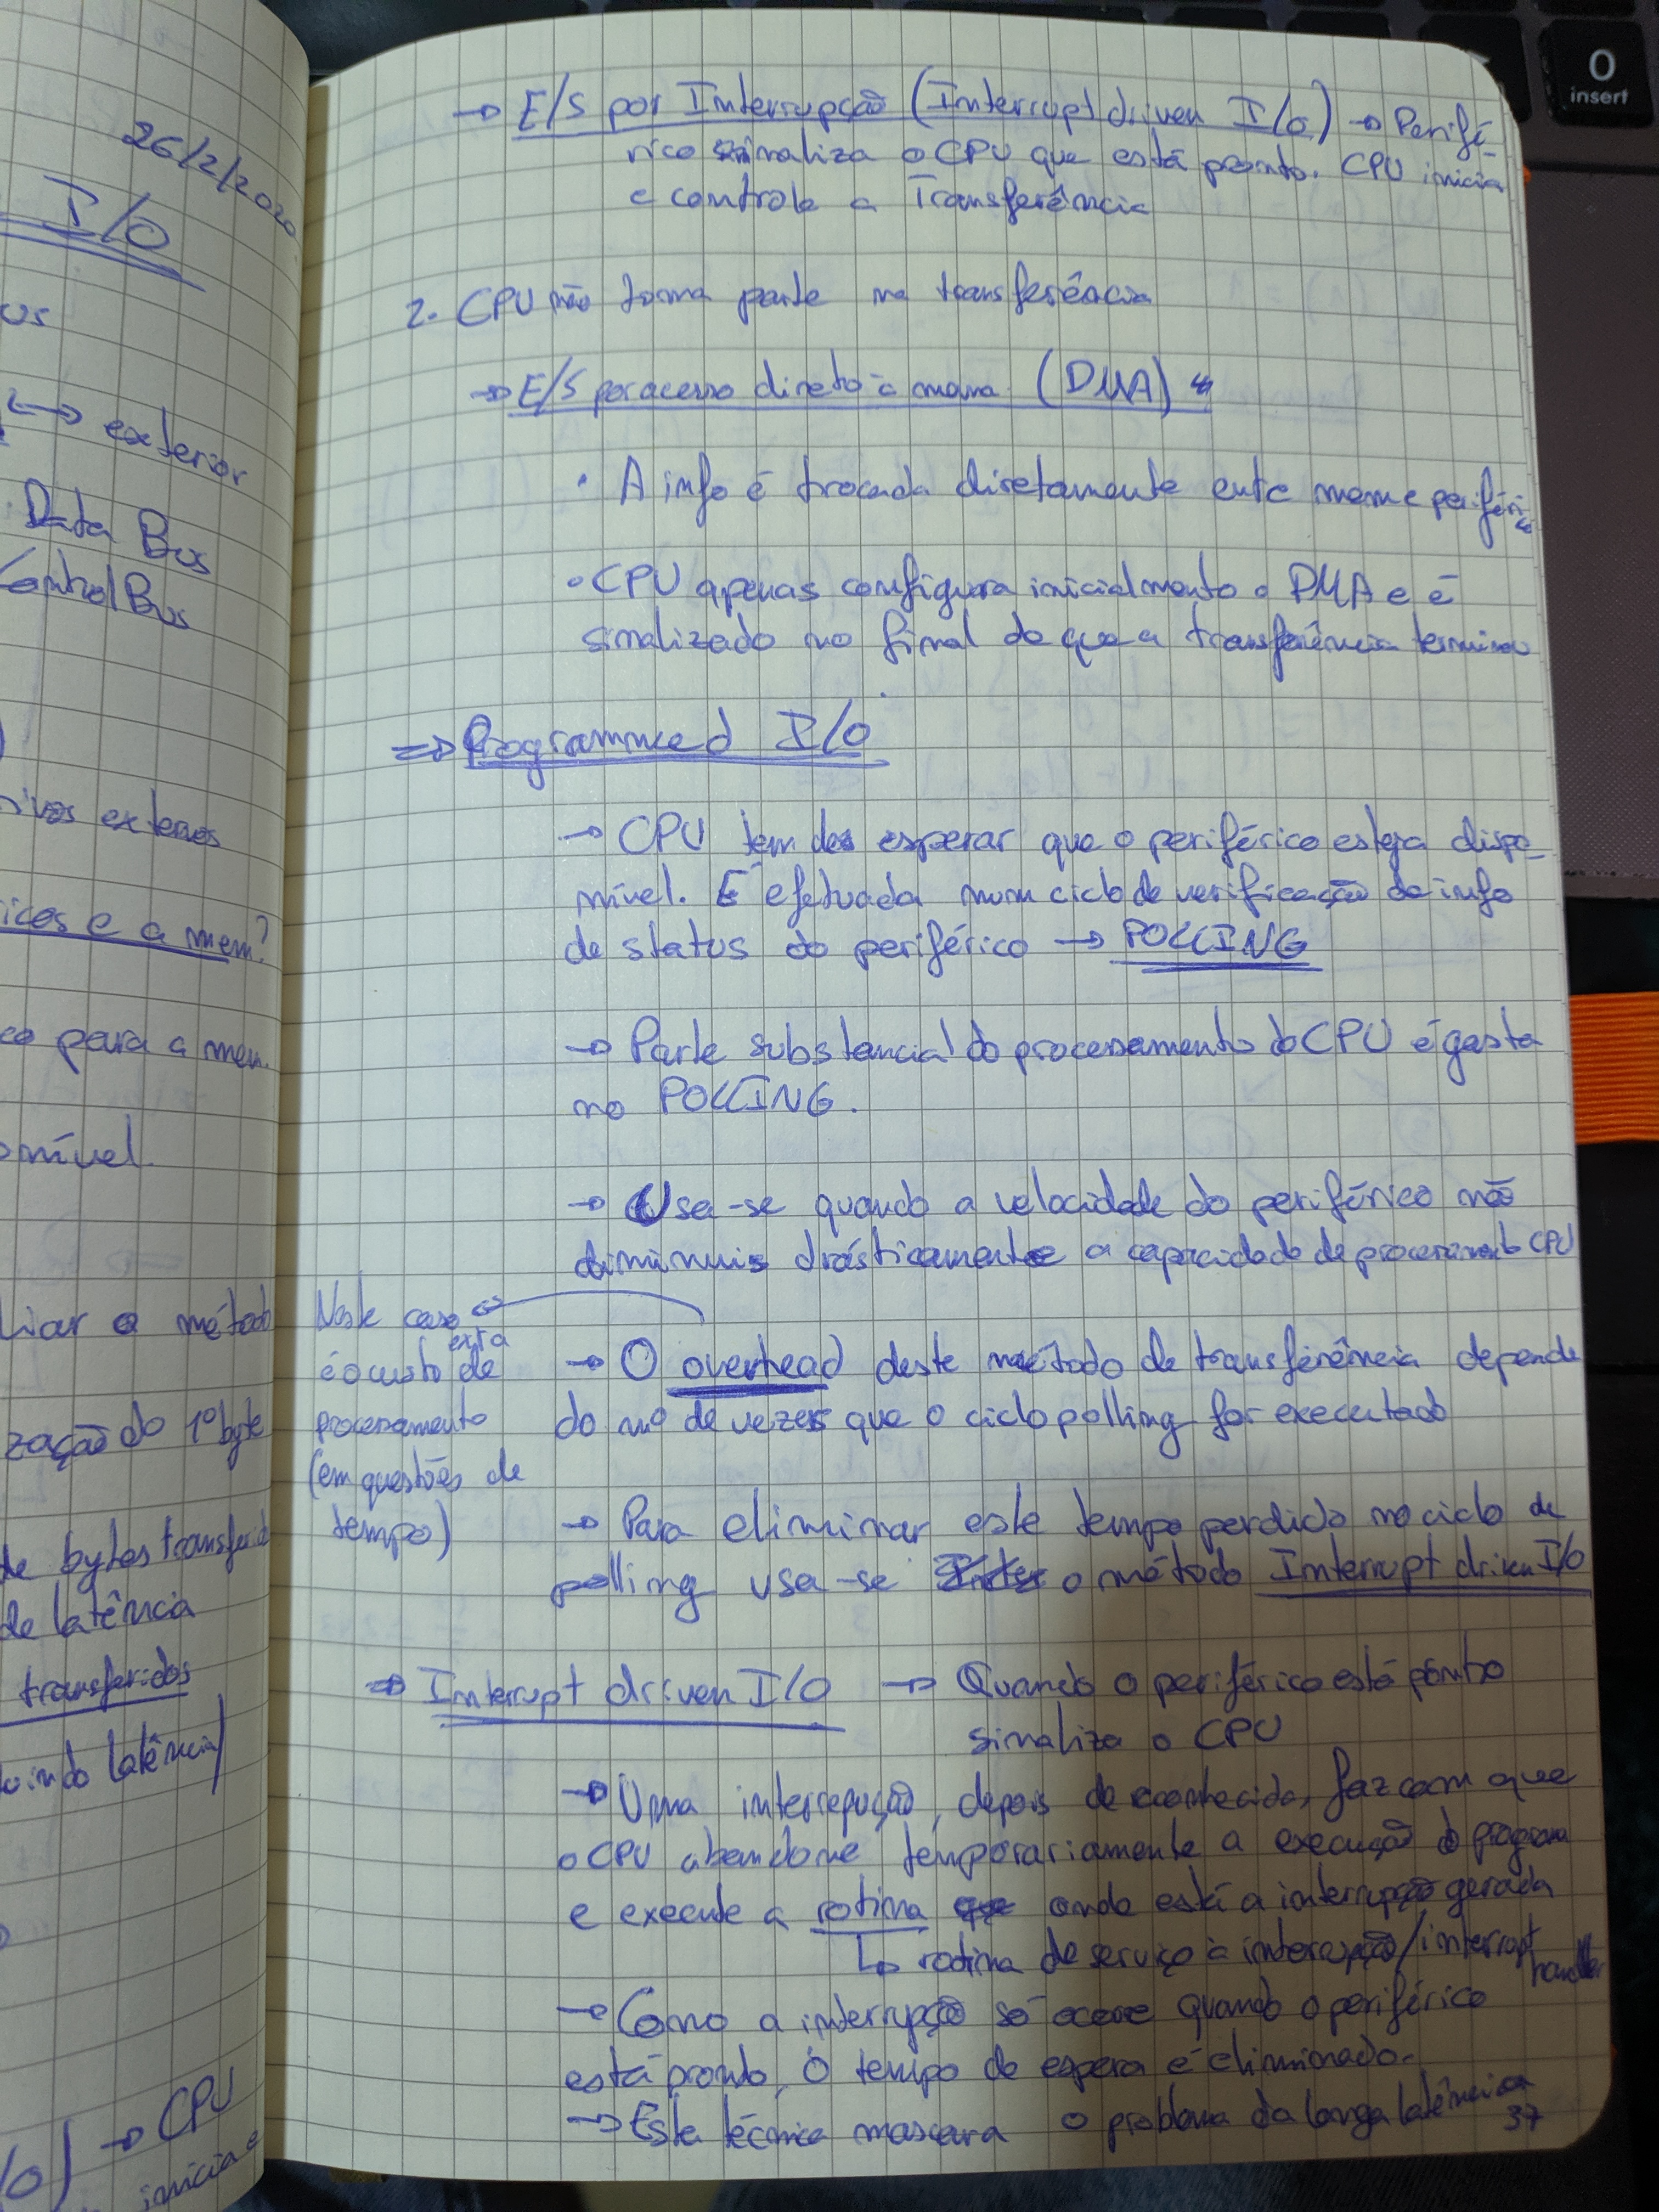 26/2/2020
I/O
us
←→ exterior
Data Bus
Control Bus
ivos externos
icos e a mem?
co para a mem.
onível.
liar o método
zação do 1º byte
de bytes transferid
de latência
transferidos
uindo latência)
/O) → CPU
inicia e
→ E/S por Interrupção (Interrupt driven I/O) → Perifé
rico sinaliza o CPU que está pronto. CPU inicia
e controla a Transferência
2. CPU não toma parte na transferência
→ E/S por acesso direto à mem. (DMA)
• A info é trocada diretamente entre mem e periféric
• CPU apenas configura inicialmente o DMA e é
sinalizado no final de que a transferência terminou
⇒ Programmed I/O
→ CPU tem de esperar que o periférico esteja dispo-
nível. É efetuada num ciclo de verificação da info
de status do periférico → POLLING
→ Parte substancial do processamento do CPU é gasta
no POLLING.
→ Usa-se quando a velocidade do periférico não
diminui drásticamente a capacidade de processamento CPU
Neste caso
é o custo extra de
processamento
(em questões de
tempo)
→ O overhead deste método de transferência depende
do nº de vezes que o ciclo polling for executado
→ Para eliminar este tempo perdido no ciclo de
polling usa-se o método Interrupt driven I/O
⇒ Interrupt driven I/O → Quando o periférico está pronto
sinaliza o CPU
→ Uma interrupção, depois de reconhecida, faz com que
o CPU abandone temporariamente a execução do programa
e execute a rotina onde está a interrupção gerada
↳ rotina de serviço à interrupção/interrupt handler
→ Como a interrupção só ocorre quando o periférico
está pronto, o tempo de espera é eliminado.
→ Esta técnica mascara o problema da longa latência
37
0
insert